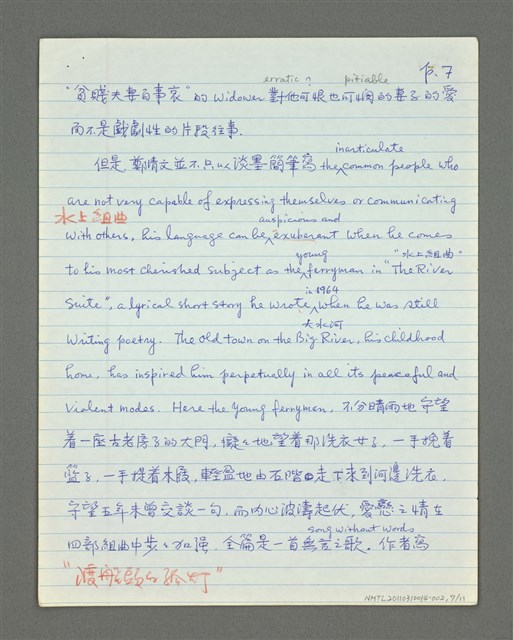 p. 7
erratic? pitiable
"貧賤夫妻百事哀"的 widower 對他可恨也可憫的妻子的愛
而不是戲劇性的片段往事.
inarticulate
但是鄭清文並不只以淡墨簡筆寫 the common people who
are not very capable of expressing themselves or communicating
水上組曲
auspicious and
with others, his language can be exuberant when he comes
young "水上組曲"
to his most cherished subject as the ferryman in "The River
in 1964
Suite", a lyrical short story he wrote, when he was still
大水河
writing poetry. The old town on the Big River, his childhood
home, has inspired him perpetually in all its peaceful and
violent modes. Here the young ferryman, 不分晴雨地守望
着一座古老房子的大門, 癡々地望着那洗衣女子, 一手挽着
籃子, 一手提着木屐, 輕盈地由石階走下來到河邊洗衣.
守望五年未曾交談一句, 而內心波濤起伏, 愛戀之情在
song without words
四部組曲中步々加强. 全篇是一首無言之歌. 作者寫
"渡船頭的孤灯"
NMTL20110312015-002, 7/11